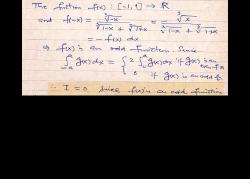 The function f(x) : [-1, 1] → R
and f(-x) = ∛-x / (∛1-x + ∛1+x) = - ∛x / (∛1-x + ∛1+x)
= - f(x) dx
⇒ f(x) is an odd function. Since
∫_{-a}^{a} g(x) dx = { 2 ∫_0^a g(x) dx if g(x) is an even fn
0 if g(x) is an odd f
∴ I = 0 since f(x) is an odd function